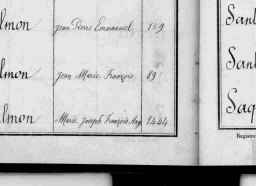 lmon Jean Pierre Emmanuel 159
lmon Jean Marie François 89
lmon Marie Joseph François Aug 1444
San
San
Saq
Registre